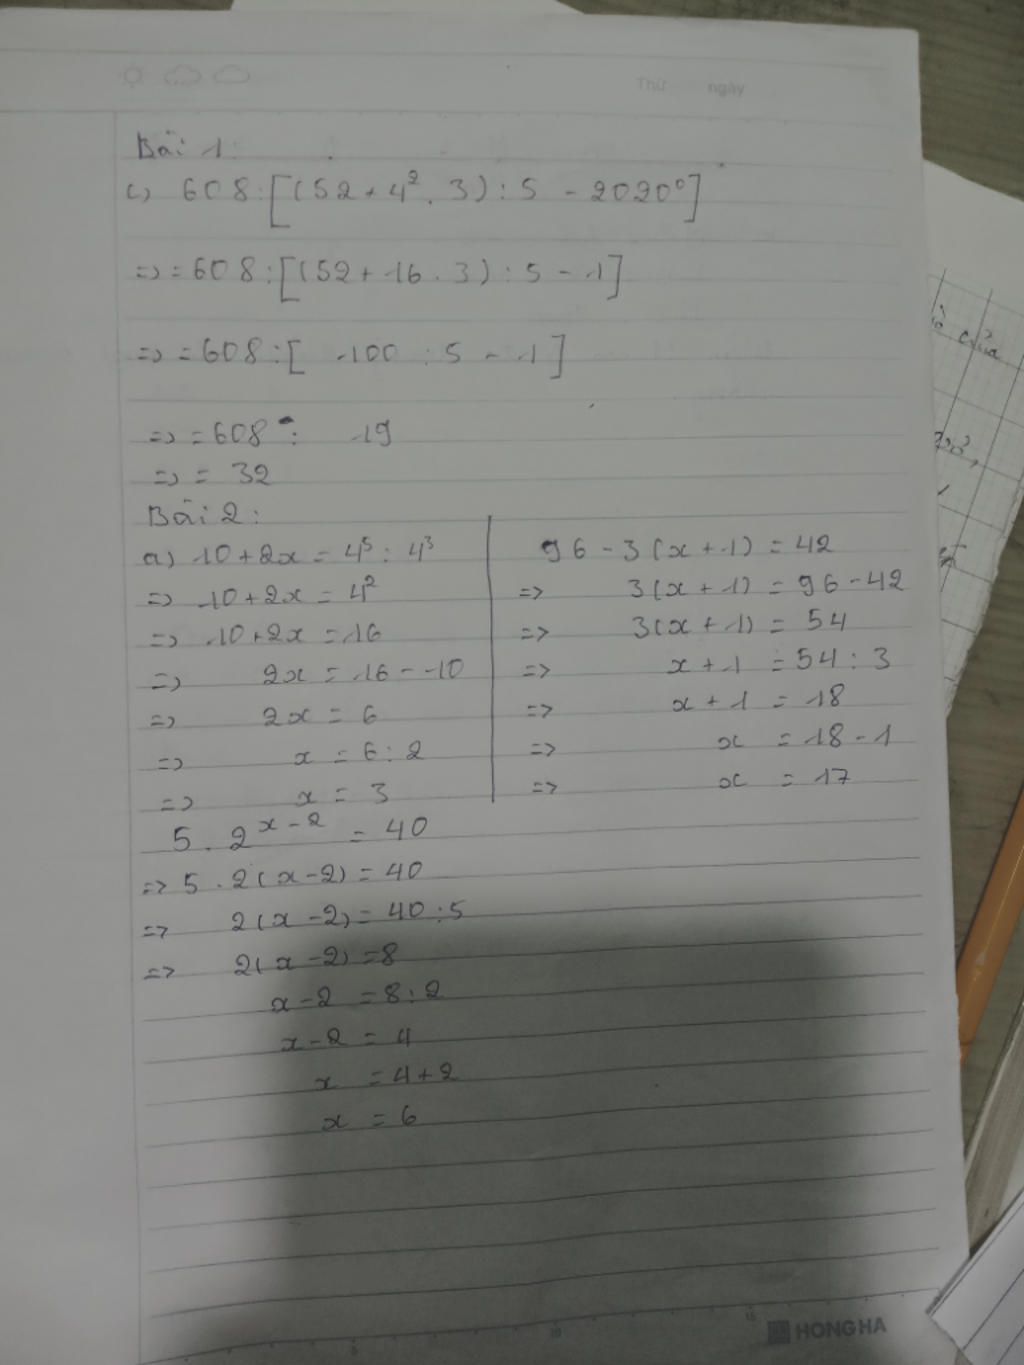 Thứ ngày
Bài 1:
c) 608 : [(52 + 4², 3) : 5 - 2020⁰]
=> = 608 : [(52 + 16 . 3) : 5 - 1]
=> = 608 : [ 100 : 5 - 1 ]
=> = 608 : 19
=> = 32
Bài 2:
a) 10 + 2x = 4⁵ : 4³
=> 10 + 2x = 4²
=> 10 + 2x = 16
=> 2x = 16 - 10
=> 2x = 6
=> x = 6 : 2
=> x = 3
96 - 3(x + 1) = 42
=> 3(x + 1) = 96 - 42
=> 3(x + 1) = 54
=> x + 1 = 54 : 3
=> x + 1 = 18
=> x = 18 - 1
=> x = 17
5 . 2ˣ⁻² = 40
=> 5 . 2(x - 2) = 40
=> 2(x - 2) = 40 : 5
=> 2(x - 2) = 8
x - 2 = 8 : 2
x - 2 = 4
x = 4 + 2
x = 6
5 10 15
HONG HA
của